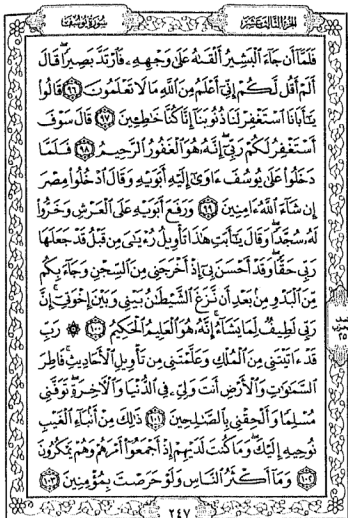 الجزء الثالث عشر
سورة يوسف
فَلَمَّآ أَن جَآءَ ٱلْبَشِيرُ أَلْقَىٰهُ عَلَىٰ وَجْهِهِۦ فَٱرْتَدَّ بَصِيرًا ۖ قَالَ
أَلَمْ أَقُل لَّكُمْ إِنِّىٓ أَعْلَمُ مِنَ ٱللَّهِ مَا لَا تَعْلَمُونَ ٩٦ قَالُوا۟
يَٰٓأَبَانَا ٱسْتَغْفِرْ لَنَا ذُنُوبَنَآ إِنَّا كُنَّا خَٰطِـِٔينَ ٩٧ قَالَ سَوْفَ
أَسْتَغْفِرُ لَكُمْ رَبِّىٓ ۖ إِنَّهُۥ هُوَ ٱلْغَفُورُ ٱلرَّحِيمُ ٩٨ فَلَمَّا
دَخَلُوا۟ عَلَىٰ يُوسُفَ ءَاوَىٰٓ إِلَيْهِ أَبَوَيْهِ وَقَالَ ٱدْخُلُوا۟ مِصْرَ
إِن شَآءَ ٱللَّهُ ءَامِنِينَ ٩٩ وَرَفَعَ أَبَوَيْهِ عَلَى ٱلْعَرْشِ وَخَرُّوا۟
لَهُۥ سُجَّدًا ۖ وَقَالَ يَٰٓأَبَتِ هَٰذَا تَأْوِيلُ رُءْيَٰىَ مِن قَبْلُ قَدْ جَعَلَهَا
رَبِّى حَقًّا ۖ وَقَدْ أَحْسَنَ بِىٓ إِذْ أَخْرَجَنِى مِنَ ٱلسِّجْنِ وَجَآءَ بِكُم
مِّنَ ٱلْبَدْوِ مِنۢ بَعْدِ أَن نَّزَغَ ٱلشَّيْطَٰنُ بَيْنِى وَبَيْنَ إِخْوَتِىٓ ۚ إِنَّ
رَبِّى لَطِيفٌ لِّمَا يَشَآءُ ۚ إِنَّهُۥ هُوَ ٱلْعَلِيمُ ٱلْحَكِيمُ ١٠٠ ۞ رَبِّ
قَدْ ءَاتَيْتَنِى مِنَ ٱلْمُلْكِ وَعَلَّمْتَنِى مِن تَأْوِيلِ ٱلْأَحَادِيثِ ۚ فَاطِرَ
ٱلسَّمَٰوَٰتِ وَٱلْأَرْضِ أَنتَ وَلِىِّۦ فِى ٱلدُّنْيَا وَٱلْءَاخِرَةِ ۖ تَوَفَّنِى
مُسْلِمًا وَأَلْحِقْنِى بِٱلصَّٰلِحِينَ ١٠١ ذَٰلِكَ مِنْ أَنۢبَآءِ ٱلْغَيْبِ
نُوحِيهِ إِلَيْكَ ۖ وَمَا كُنتَ لَدَيْهِمْ إِذْ أَجْمَعُوٓا۟ أَمْرَهُمْ وَهُمْ يَمْكُرُونَ
١٠٢ وَمَآ أَكْثَرُ ٱلنَّاسِ وَلَوْ حَرَصْتَ بِمُؤْمِنِينَ ١٠٣
٢٤٧
٢٥